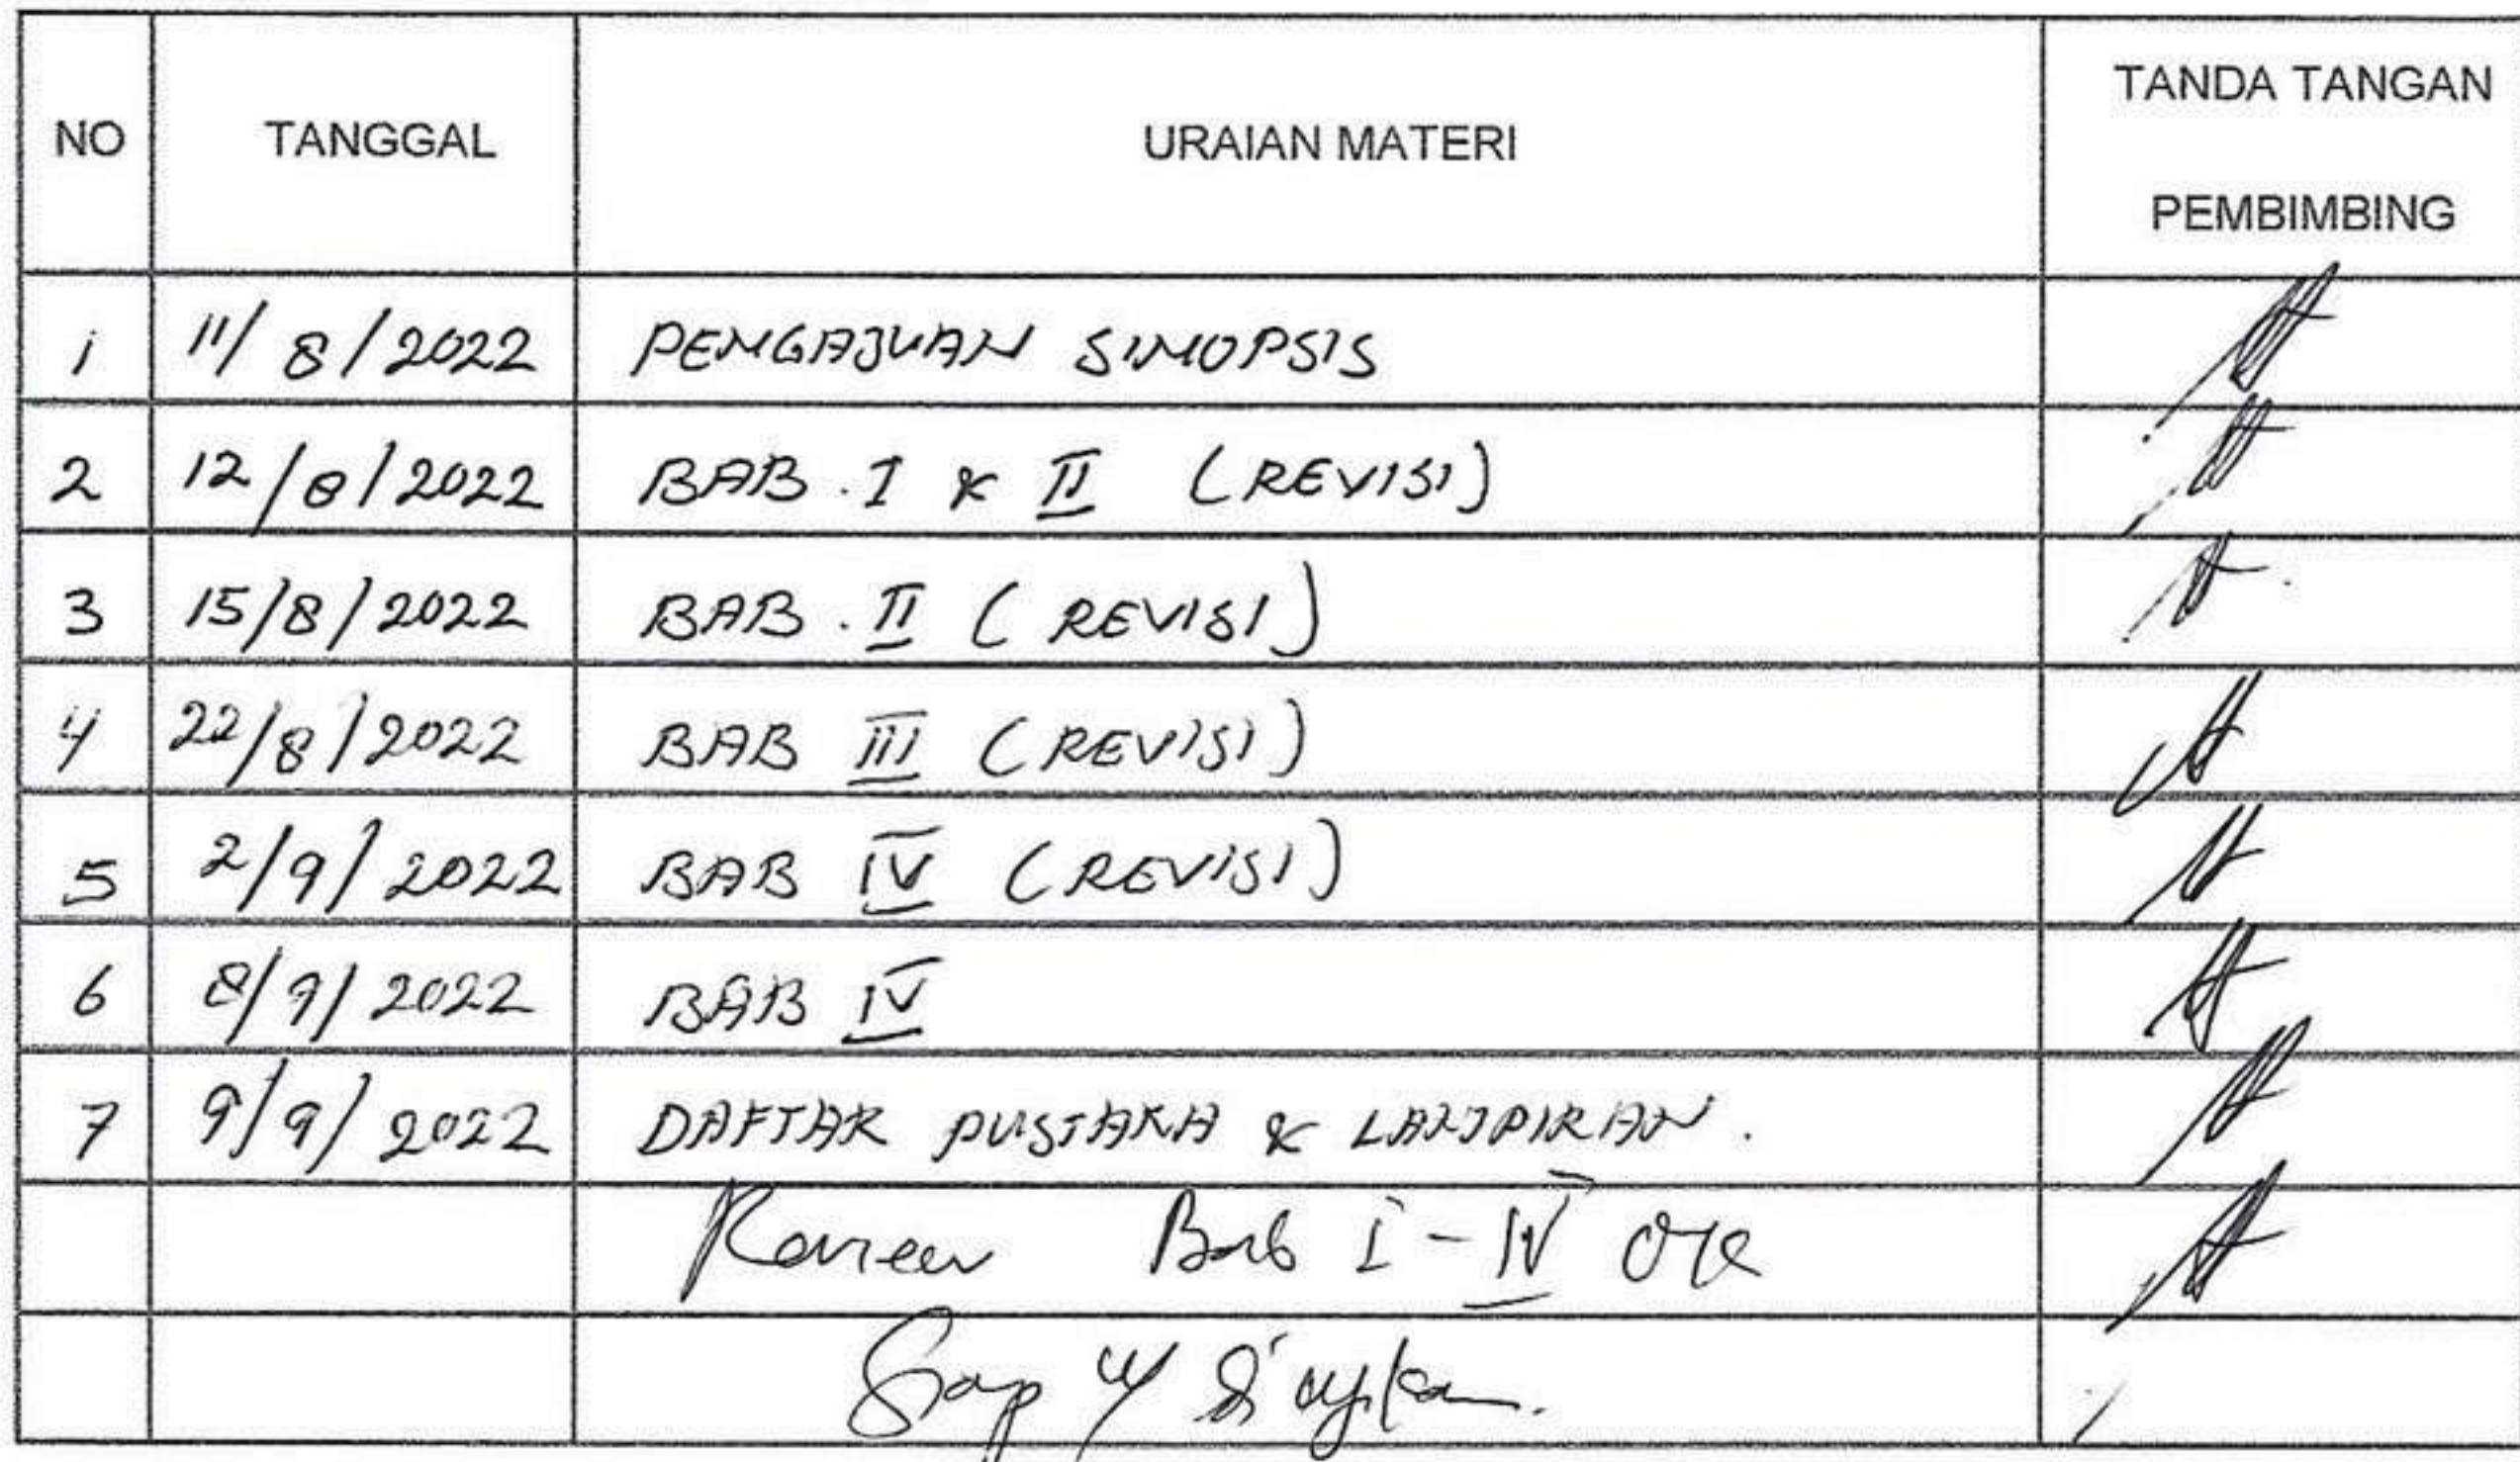 NO TANGGAL URAIAN MATERI TANDA TANGAN PEMBIMBING
1 11/8/2022 PENGAJUAN SINOPSIS
2 12/8/2022 BAB . I & II (REVISI)
3 15/8/2022 BAB . II (REVISI)
4 22/8/2022 BAB III (REVISI)
5 2/9/2022 BAB IV (REVISI)
6 8/9/2022 BAB IV
7 9/9/2022 DAFTAR PUSTAKA & LAMPIRAN.
Bab I - IV
Siap